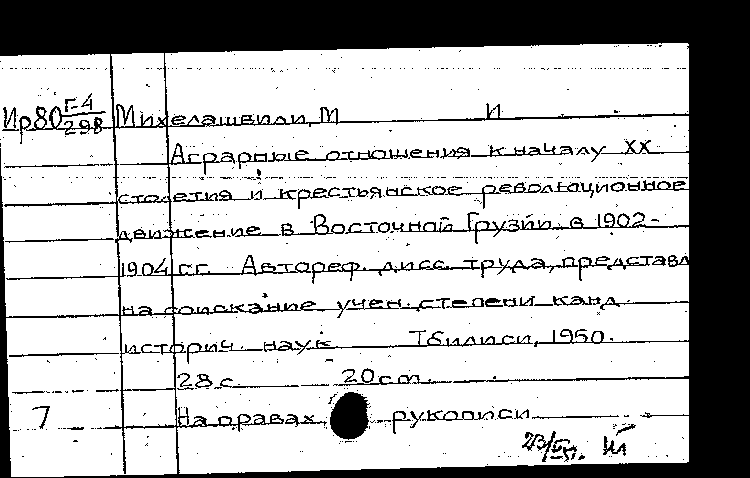 Ир80 Г-4/298 Михелашвили, М И
Аграрные отношения к началу XX
столетия и крестьянское революционное
движение в Восточной Грузии в 1902-
1904 гг. Автореф. дисс. труда, представл
на соискание учен. степени канд.
историч. наук Тбилиси, 1950.
28 с. 20 cm.
7 На правах рукописи